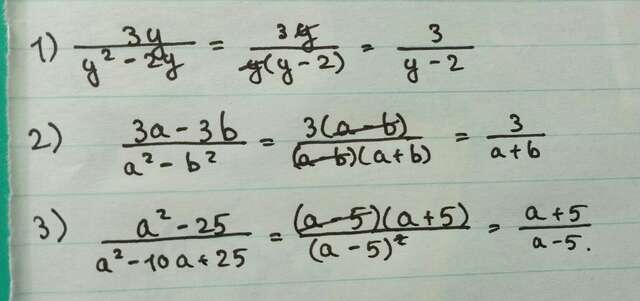 1) 3y / (y² - 2y) = 3y / (y(y - 2)) = 3 / (y - 2)
2) (3a - 3b) / (a² - b²) = 3(a - b) / ((a - b)(a + b)) = 3 / (a + b)
3) (a² - 25) / (a² - 10a + 25) = (a - 5)(a + 5) / (a - 5)² = (a + 5) / (a - 5).